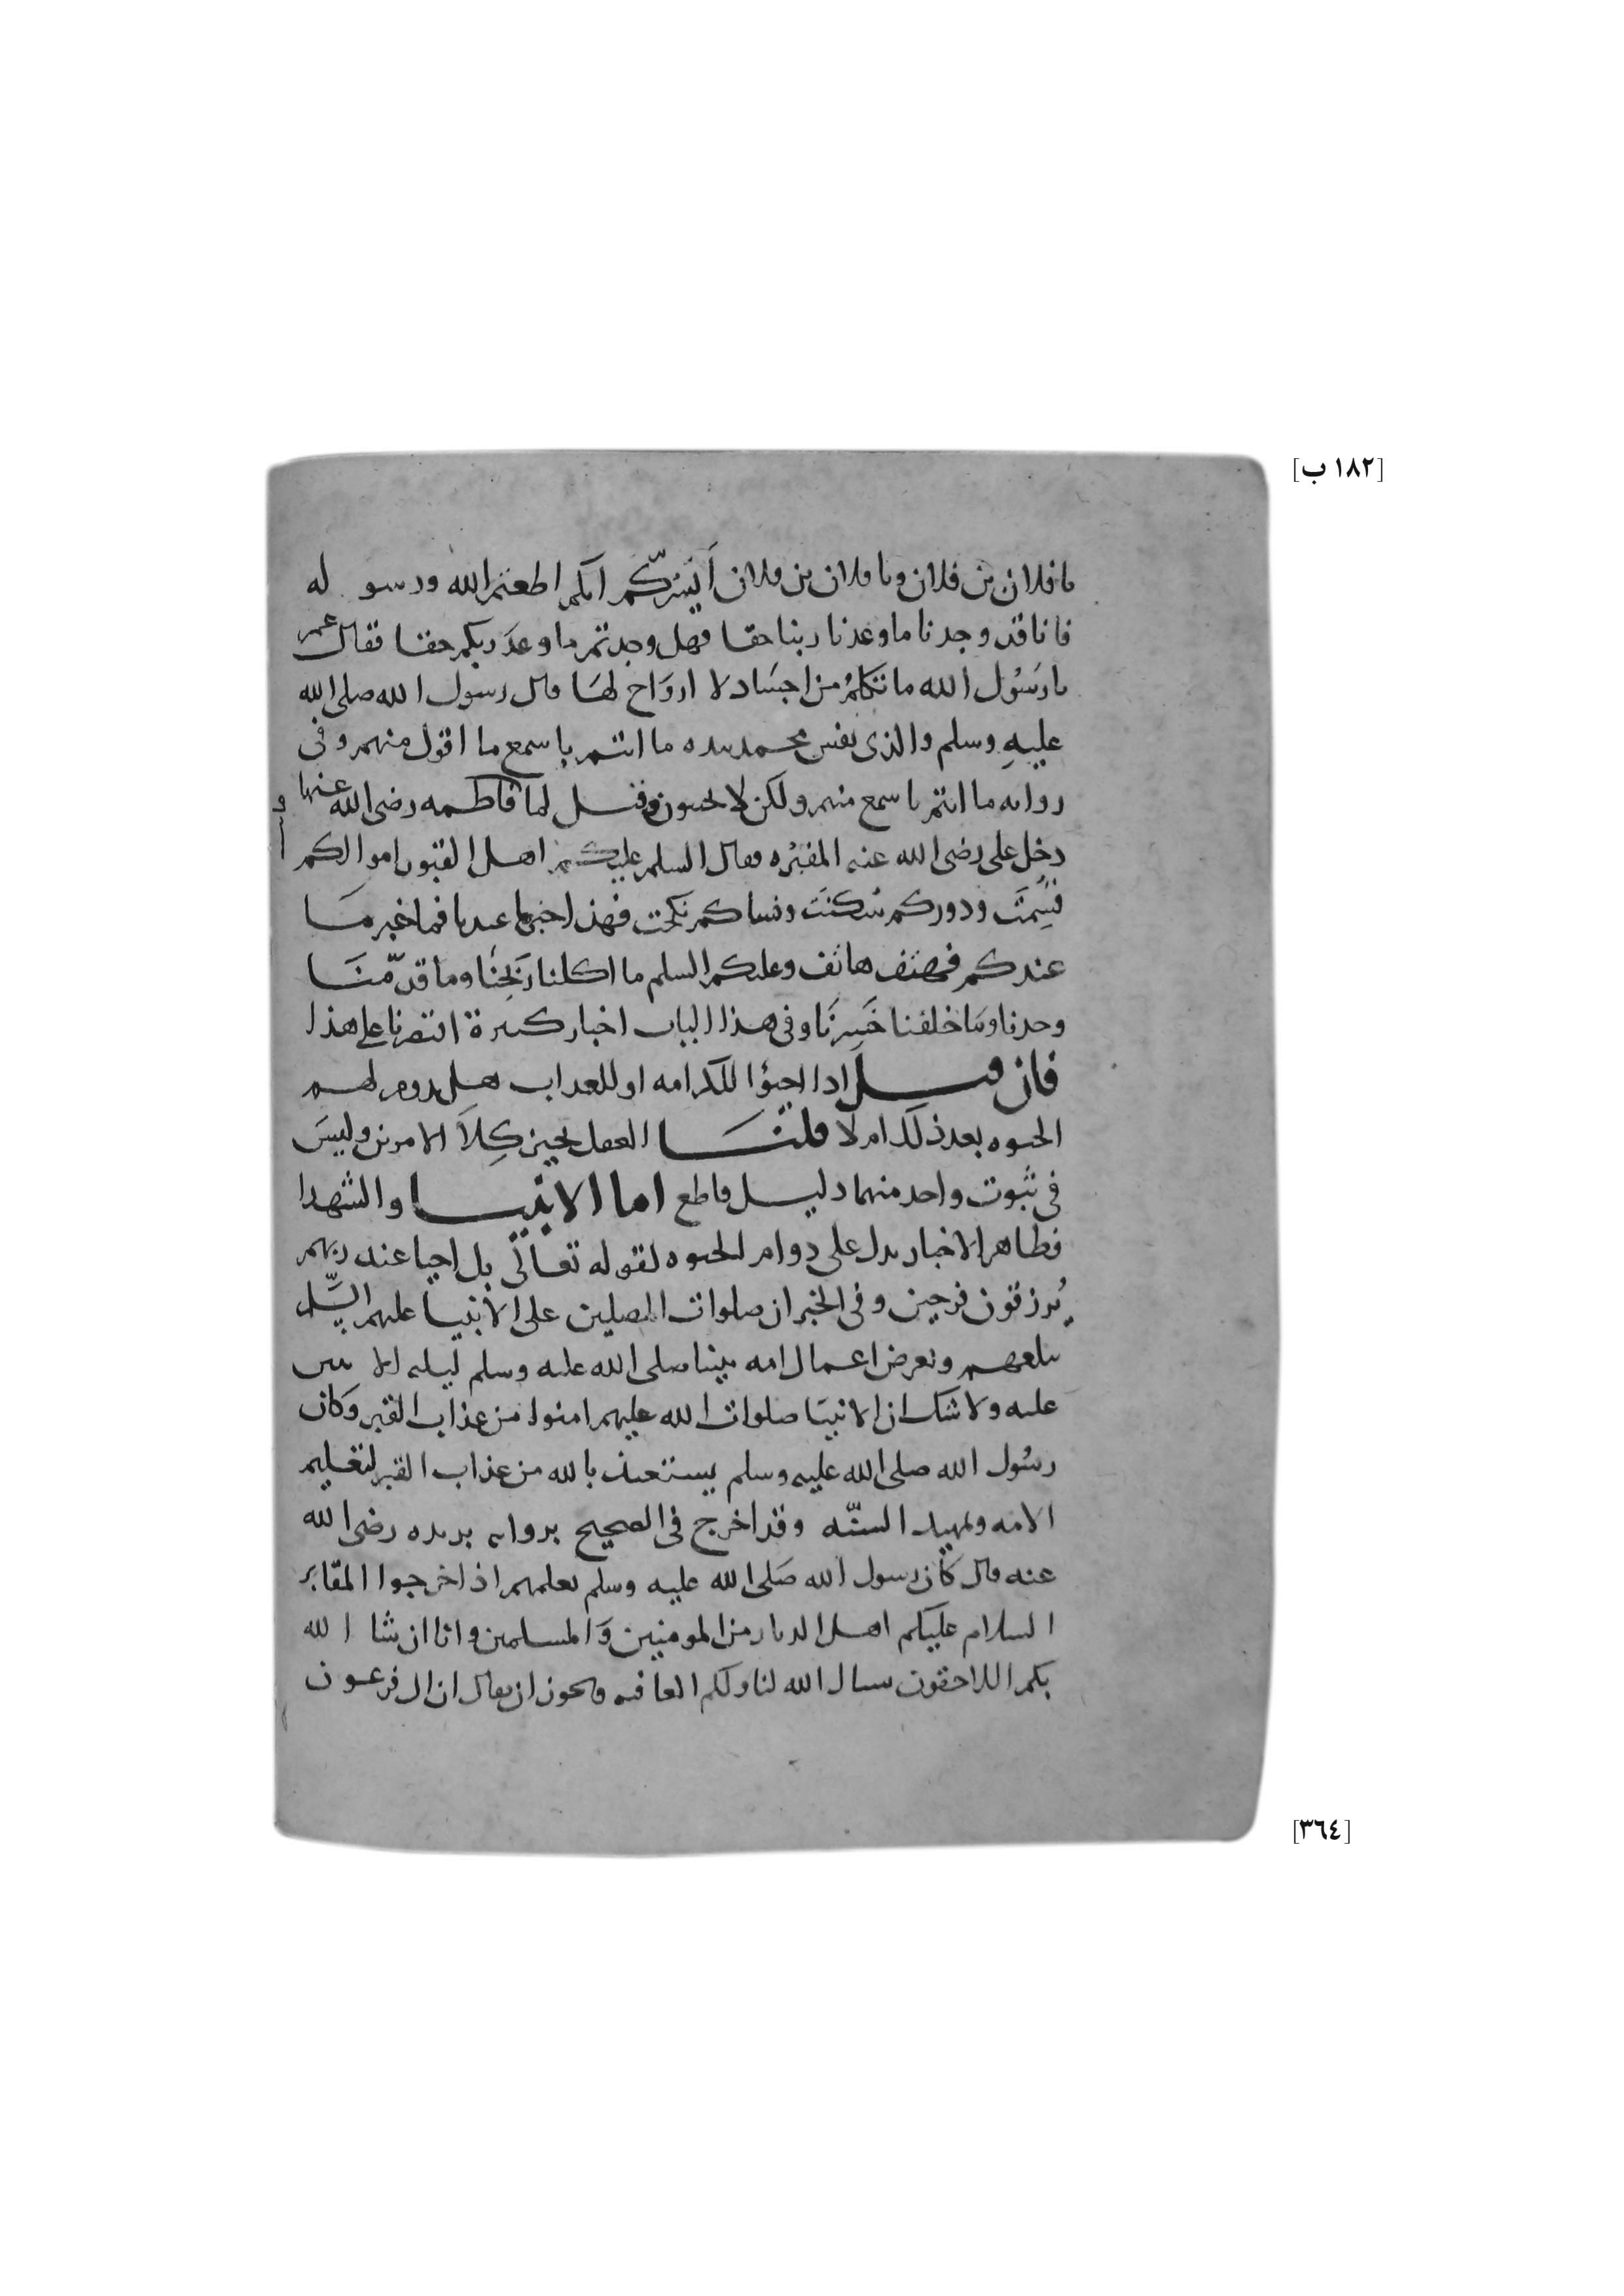 [١٨٢ ب]
يا فلان بن فلان ويا فلان بن فلان أيسركم انكم اطعتم الله ورسوله
فانا قد وجدنا ما وعدنا ربنا حقا فهل وجدتم ما وعد ربكم حقا فقال عمر
يا رسول الله ما تكلم من اجساد لا ارواح لها قال رسول الله صلى الله
عليه وسلم والذى نفس محمد بيده ما انتم باسمع ما اقول منهم وفى
روايه ما انتم باسمع منهم ولكن لا يجيبون وقيل لما فاطمه رضى الله عنها
دخل على رضى الله عنه المقبره وقال السلم عليكم اهل القبور اموالكم
قسمت ودوركم سكنت ونساكم نكحت فهذا خبر ما عندنا فما خبر ما
عندكم فهتف هاتف وعليكم السلم ما اكلنا ربحنا وما قدمنا
وجدنا وما خلفنا خسرنا وفى هذا الباب اخبار كثيرة اقتصرنا على هذا
فان قيل اذا احيوا للكرامه او للعذاب هل يدوم لهم
الحيوه بعد ذلك ام لا قلنا العقل يجيز كلا الامرين وليس
فى ثبوت واحد منهما دليل قاطع اما الانبيا والشهدا
فظاهر الاخبار يدل على دوام الحيوه لقوله تعالى بل احيا عند ربهم
يرزقون فرحين وفى الخبر ان صلوات المصلين على الانبيا عليهم السلم
تبلغهم وتعرض اعمال امه نبينا صلى الله عليه وسلم ليله الاثنين
عليه ولا شك ان الانبيا صلوات الله عليهم امنوا من عذاب القبر وكان
رسول الله صلى الله عليه وسلم يستعيذ بالله من عذاب القبر لتعليم
الامه وتمهيد السنه وقد اخرج فى الصحيح بروايه بريده رضى الله
عنه قال كان رسول الله صلى الله عليه وسلم يعلمهم اذا خرجوا المقابر
السلام عليكم اهل الديار من المومنين والمسلمين وانا ان شا الله
بكم اللاحقون نسال الله لنا ولكم العافيه ويجوز ان يقال ان ال فرعون
[٣٦٤]